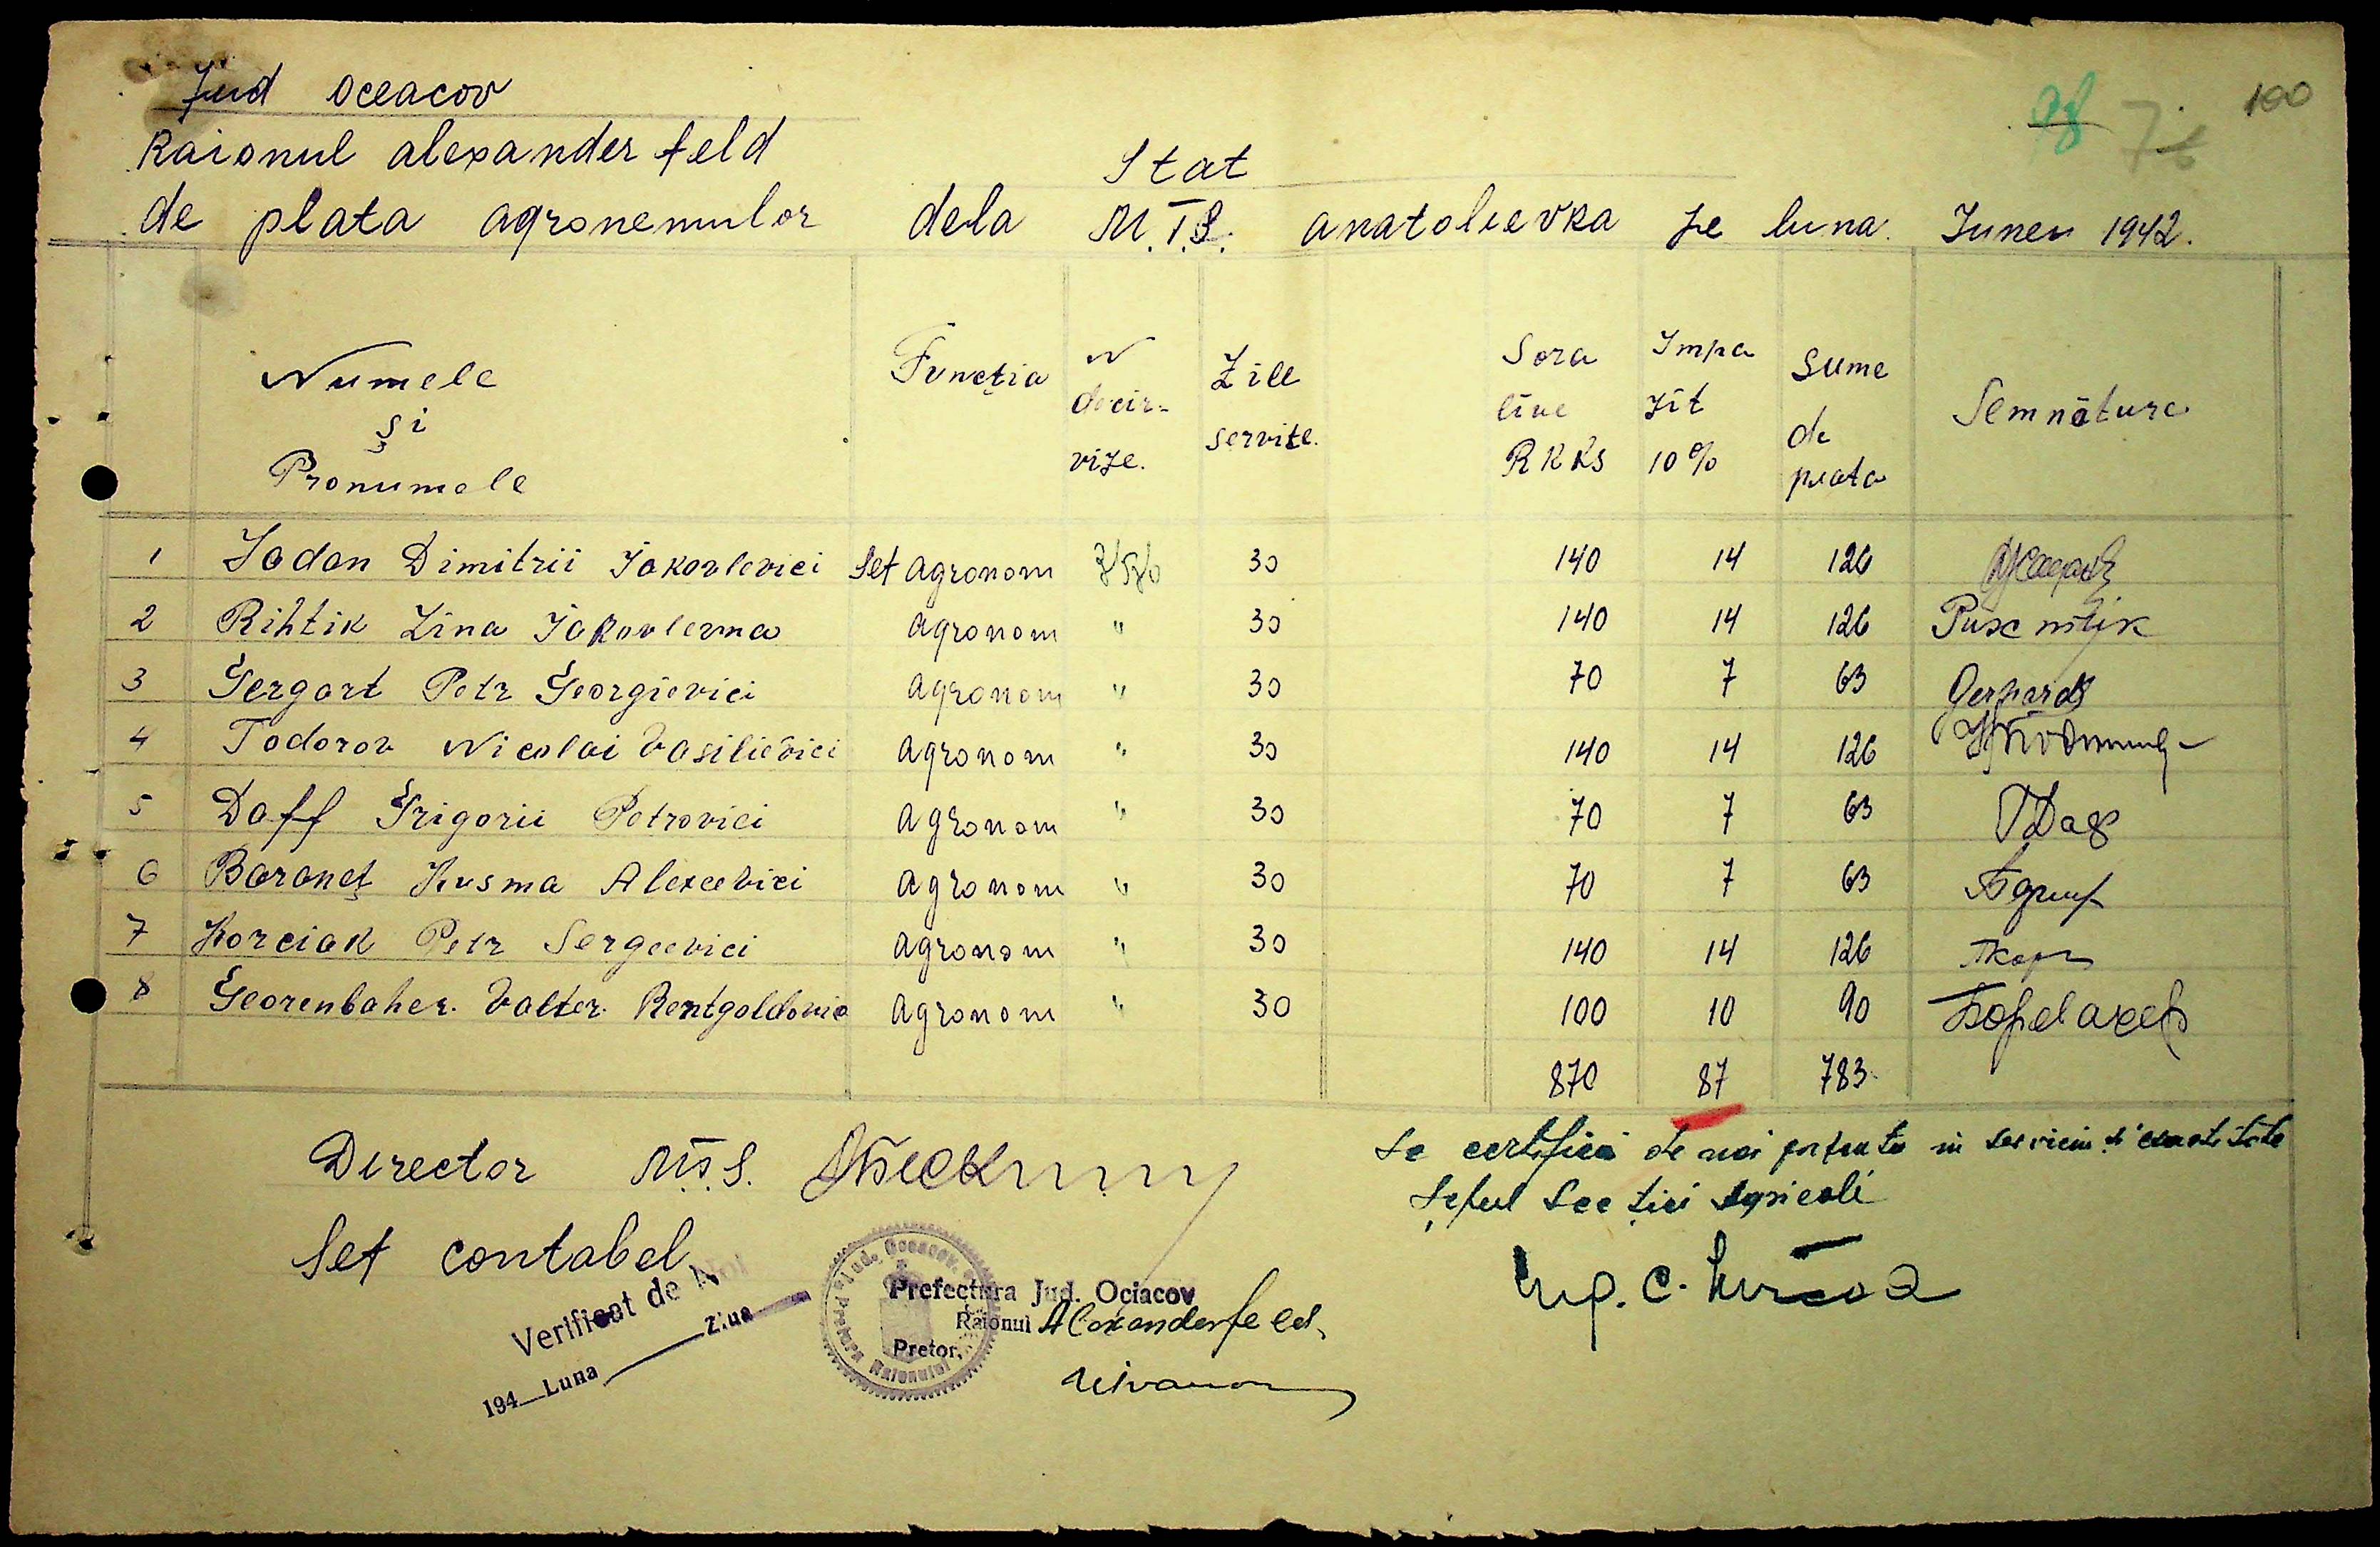 Jud Oceacov
98 76 100
Raionul alexander feld
Stat
de plata agronemulor dela M.T.S. anatolievka pe luna Junei 1942.
Numele și Pronumele Funcția N decir-vize. Zile servite. Sora line RKKS Impa zit 10% Sume de plata Semnăture
1 Jadan Dimitrii Jakovlevici Sef agronom 30 140 14 126
2 Rihtik Zina Jakovlevna agronom " 30 140 14 126
3 Gergart Petr Georgievici agronom " 30 70 7 63 Gerhards
4 Todorov Nicolai Vasilievici agronom " 30 140 14 126
5 Daff Grigorii Petrovici agronom " 30 70 7 63 ГДаф
6 Baraneț Kusma Alexeevici agronom " 30 70 7 63
7 Korciak Petr Sergeevici agronom " 30 140 14 126 ПКорч
8 Georenbaher Valter Rentgoldovic agronom " 30 100 10 90
870 87 783
Director M.T.S.
Se certifică de noi in serviciu
Șeful Secției agricoli
Sef contabel
Verificat de Noi
Ziua
194 Luna
Prefectura Jud. Ociacov
Raionul Alexanderfeld
Pretor,
Ing. C.